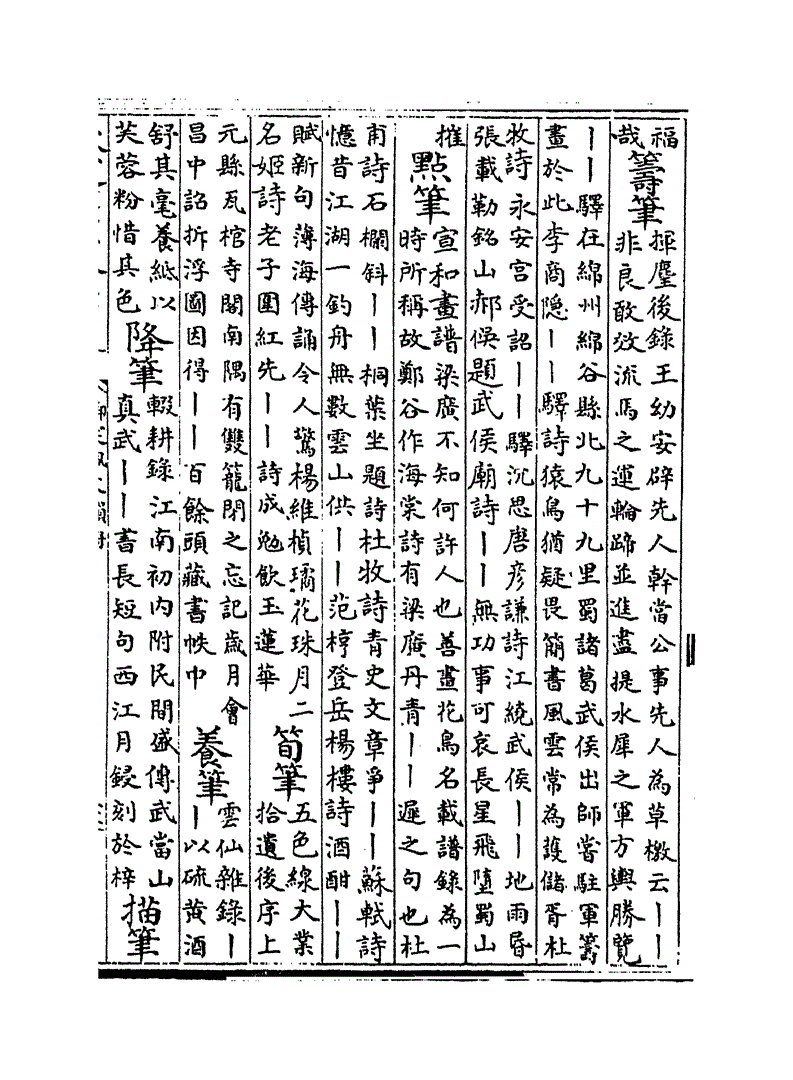 福
哉
籌筆
揮麈後錄王幼安辟先人幹當公事先人為草檄云丨丨
非良敢效流馬之運輪蹄並進盡提水犀之軍方輿勝覽
丨丨驛在綿州綿谷縣北九十九里蜀諸葛武侯出師嘗駐軍籌
畫於此李商隱丨丨驛詩猿鳥猶疑畏簡書風雲常為護儲胥杜
牧詩永安宮受詔丨丨驛沉思唐彥謙詩江繞武侯丨丨地雨昏
張載勒銘山郝俁題武侯廟詩丨丨無功事可哀長星飛墮蜀山
摧
點筆
宣和畫譜梁廣不知何許人也善畫花鳥名載譜錄為一
時所稱故鄭谷作海棠詩有梁廣丹青丨丨遲之句也杜
甫詩石欄斜丨丨桐葉坐題詩杜牧詩青史文章爭丨丨蘇軾詩
憶昔江湖一釣舟無數雲山供丨丨范梈登岳楊樓詩酒酣丨丨
賦新句薄海傳誦令人驚楊維楨璚花珠月二
名姬詩老子圍紅先丨丨詩成勉飲玉蓮華
筍筆
五色線大業
拾遺後序上
元縣瓦棺寺閣南隅有雙籠閉之忘記歲月會
昌中詔折浮圖因得丨丨百餘頭藏書帙中
養筆
雲仙雜錄丨
丨以硫黄酒
舒其毫養紙以
芙蓉粉惜其色
降筆
輟耕錄江南初內附民間盛傳武當山
真武丨丨書長短句西江月鋟刻於梓
描筆